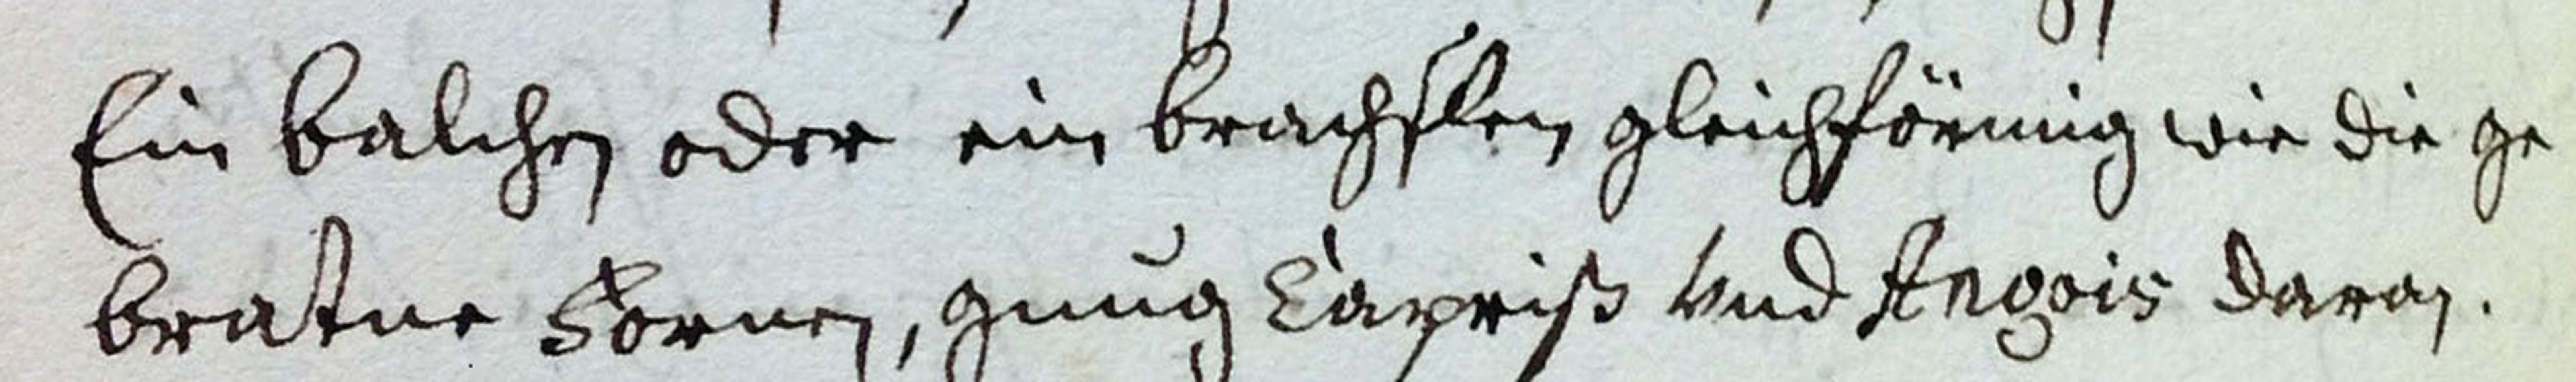 Ein balchen oder ein brachssen gleichförmig wie die ge
bratne Förnen, gnug Capriß vnd Angois daran.